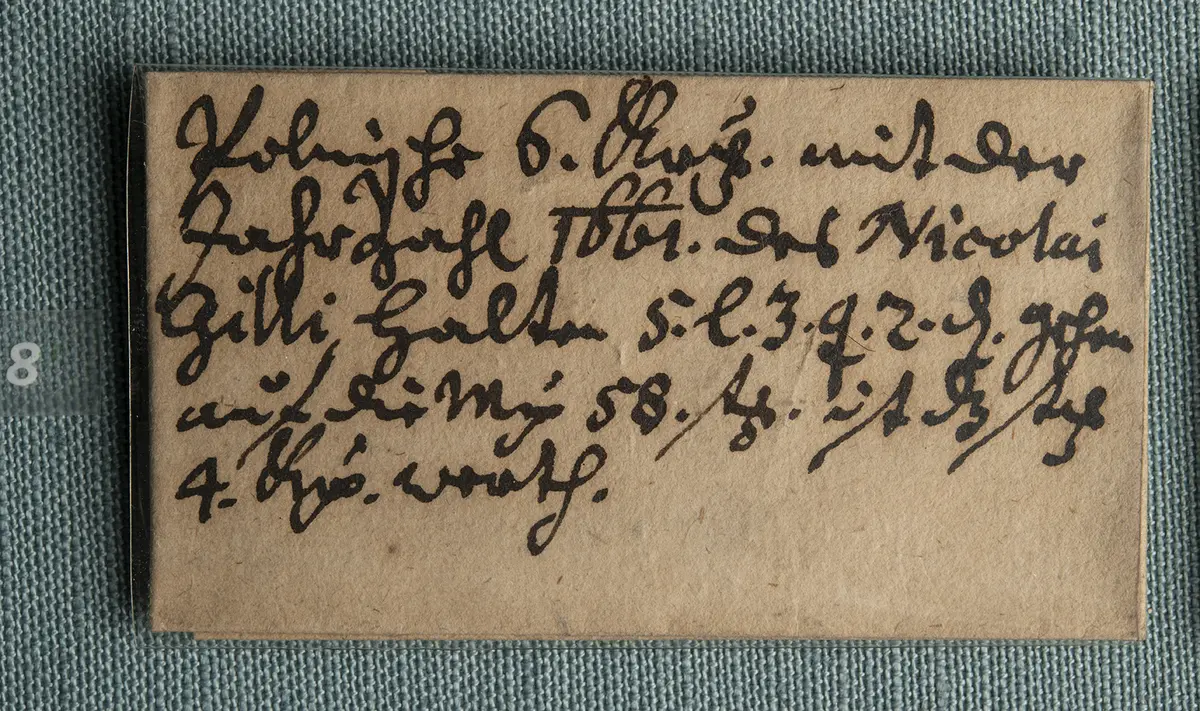 Polnische 6. Krz. mit der
Jahrzahl 1661. des Nicolai
Gilli halten 5. l. 3. q. 2. d. gehen
auf die Mz 58. stz. ist dz stz
4. Krz. werth.
8